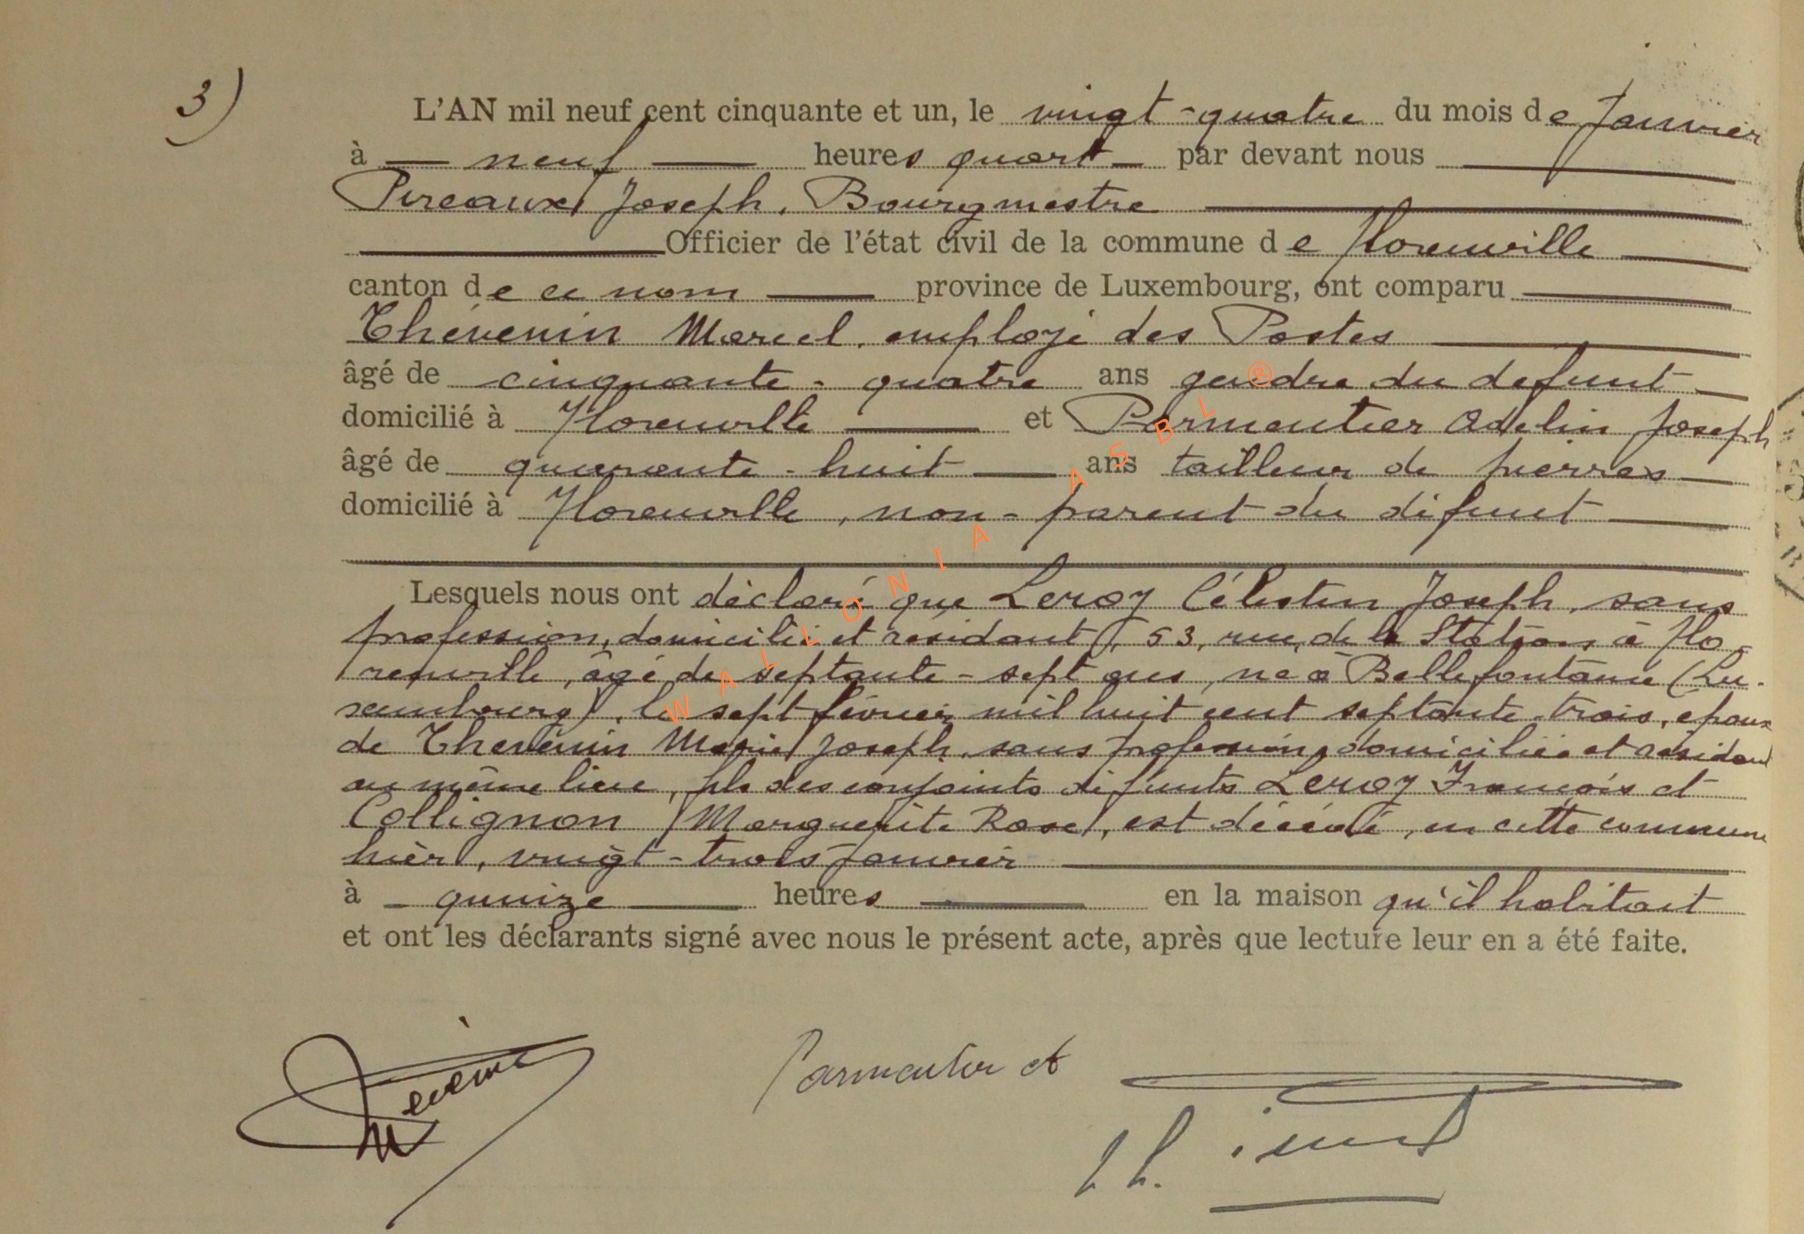 3)
L'AN mil neuf cent cinquante et un, le vingt-quatre du mois de Janvier
à neuf heures quart par devant nous
Pireaux Joseph, Bourgmestre
Officier de l'état civil de la commune de Florenville
canton de ce nom province de Luxembourg, ont comparu
Thévenin Marcel, employé des Postes
âgé de cinquante-quatre ans gendre du defunt
domicilié à Florenville et Parmentier Adelin Joseph
âgé de quarante-huit ans tailleur de pierres
domicilié à Florenville, non-parent du défunt
Lesquels nous ont déclaré que Leroy Célestin Joseph, sans
profession, domicilié et résidant, 53, rue de la Station, à Flo-
renville, âgé de septante-sept ans, né à Bellefontaine (Lu-
xembourg), le sept février mil huit cent septante-trois, époux
de Thévenin Marie Joseph, sans profession, domiciliée et résidant
au même lieu, fils des conjoints défunts Leroy François et
Collignon Marguerite Rose, est décédé, en cette commune
hier, vingt-trois Janvier
à quinze heures en la maison qu'il habitait
et ont les déclarants signé avec nous le présent acte, après que lecture leur en a été faite.
Parmentier et
WALLONIA ASBL ®